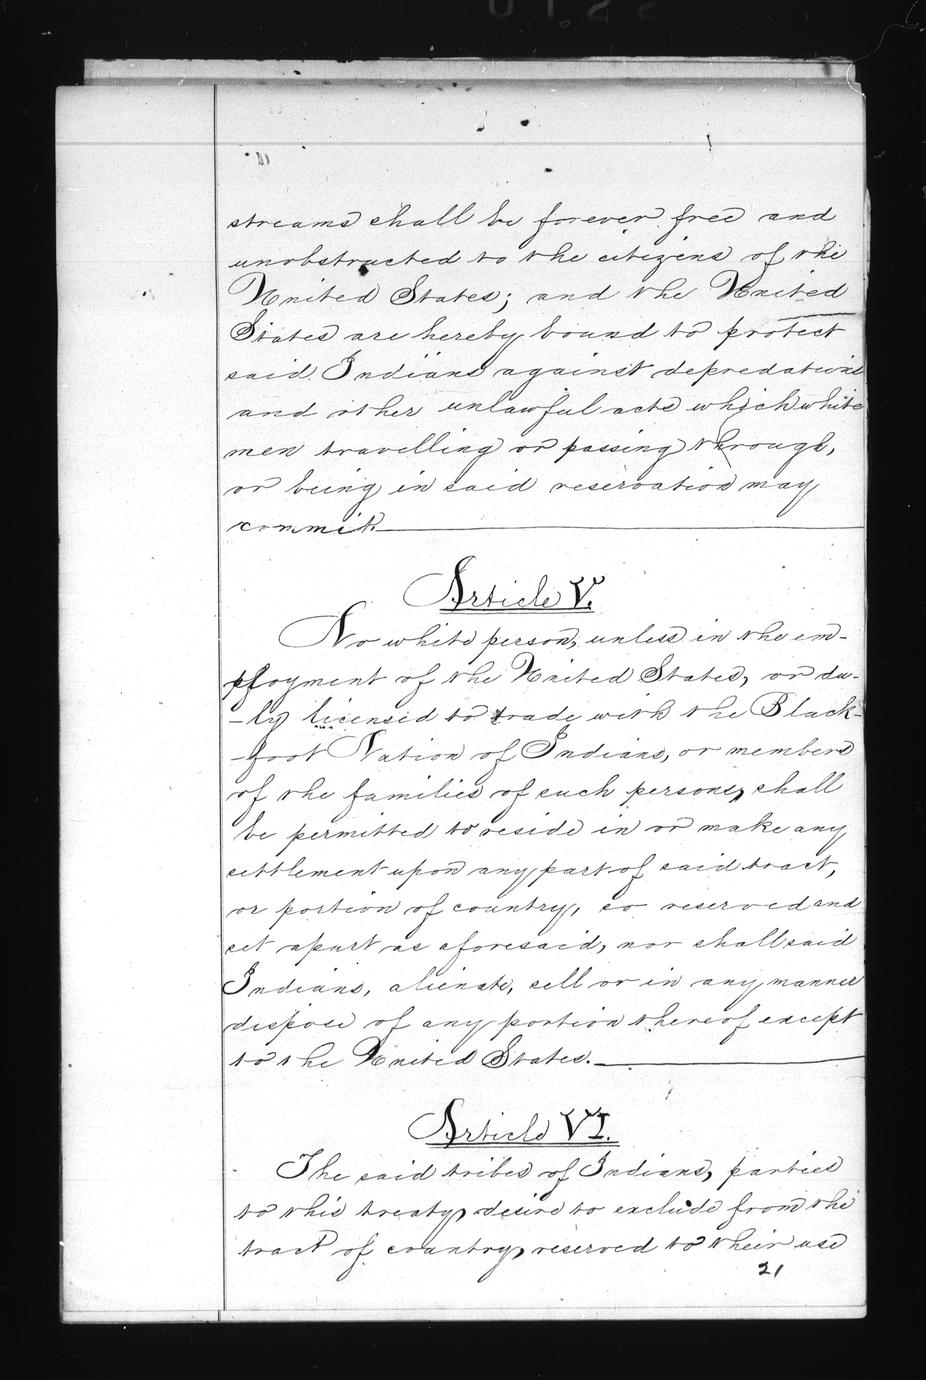 streams shall be forever free and
unobstructed to the citizens of the
United States; and the United
States are hereby bound to protect
said Indians against depredations
and other unlawful acts which white
men travelling or passing through,
or being in said reservation may
commit.
Article V.
No white person, unless in the em-
ployment of the United States, or du-
-ly licensed to trade with the Black-
-foot Nation of Indians, or members
of the families of such persons, shall
be permitted to reside in or make any
settlement upon any part of said tract,
or portion of country, so reserved and
set apart as aforesaid, nor shall said
Indians, alienate, sell or in any manner
dispose of any portion thereof except
to the United States.
Article VI.
The said tribes of Indians, parties
to this treaty, desire to exclude from the
tract of country, reserved to their use
21